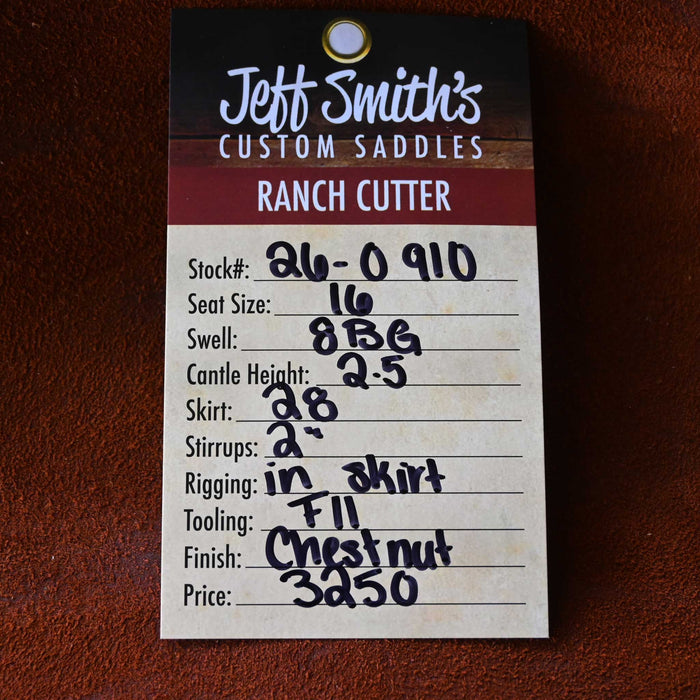 Jeff Smith's
CUSTOM SADDLES
RANCH CUTTER
Stock#: 26-0910
Seat Size: 16
Swell: 8BG
Cantle Height: 2.5
Skirt: 28
Stirrups: 2"
Rigging: in skirt
Tooling: F11
Finish: Chestnut
Price: 3250